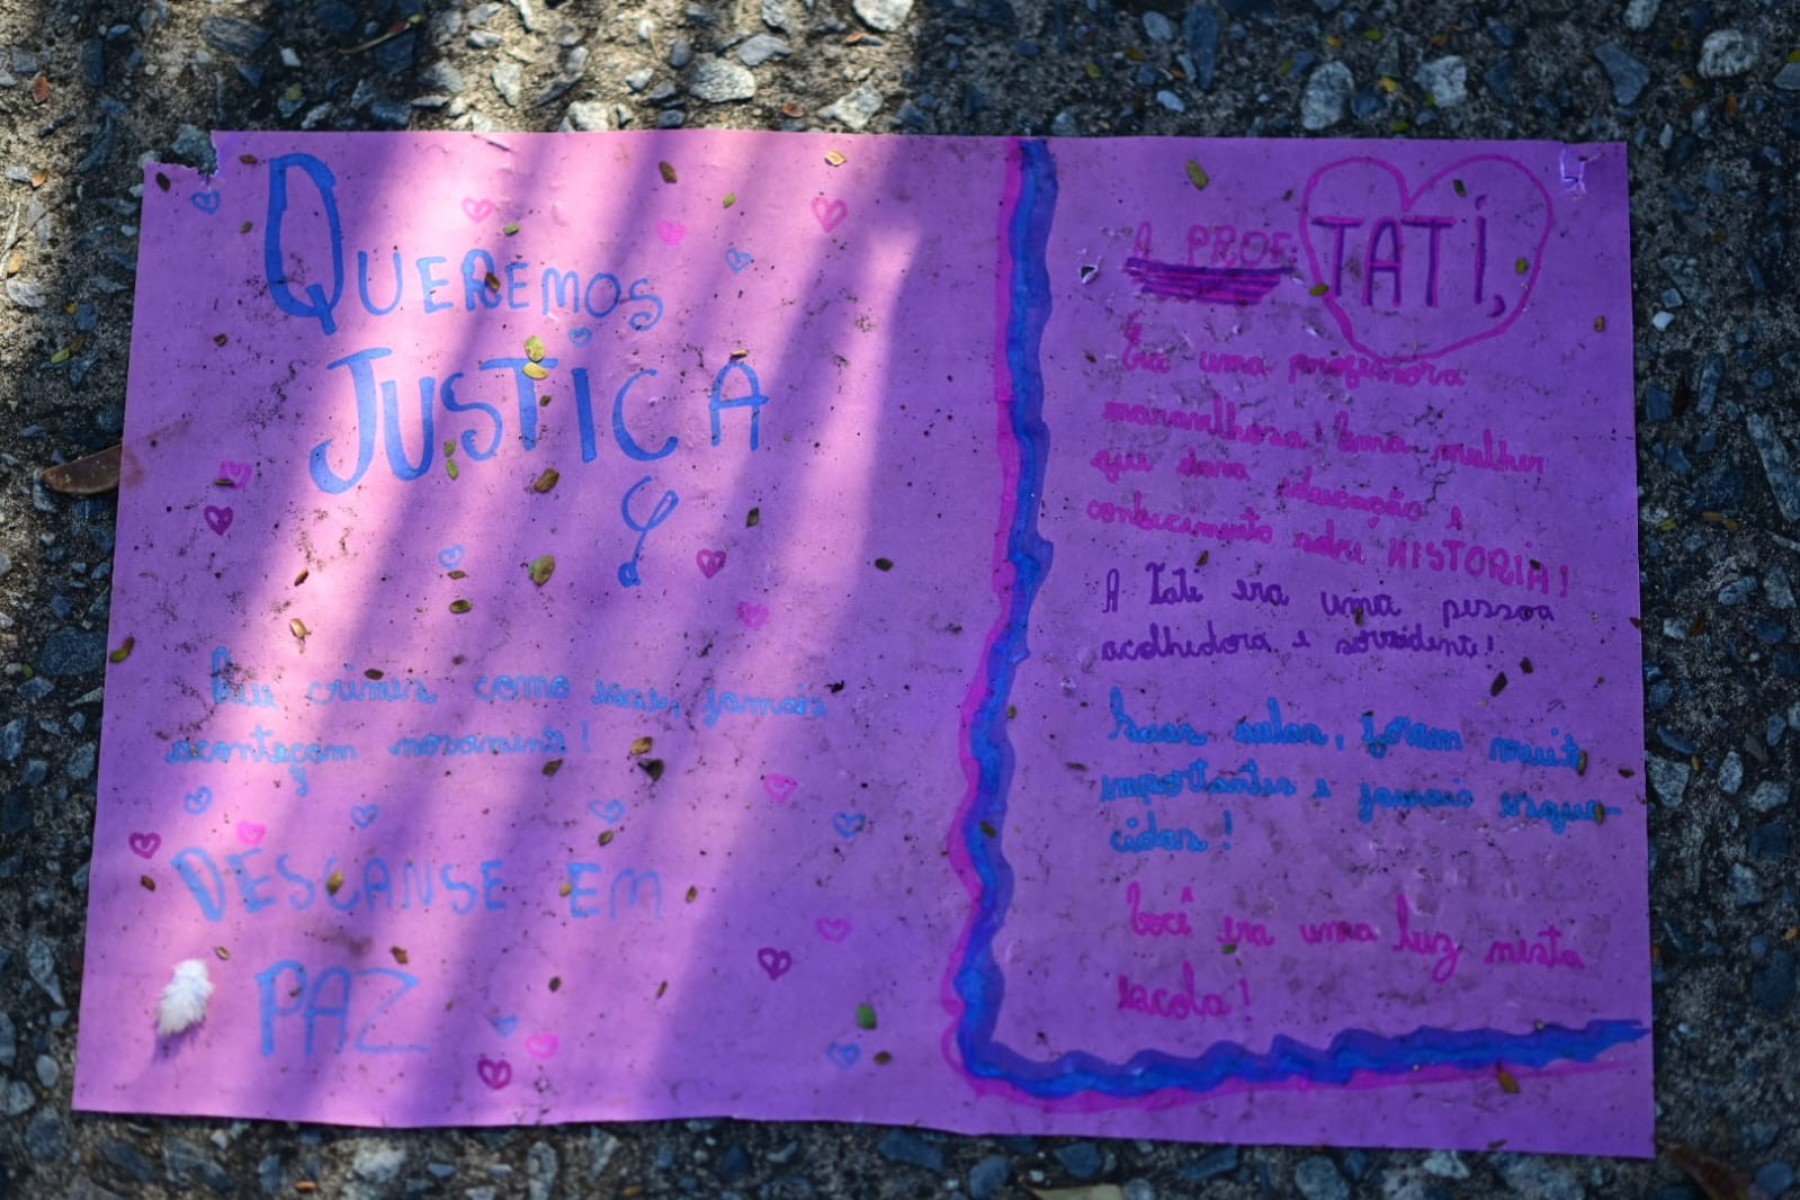 QUEREMOS
JUSTIÇA
Que crimes como esse, jamais
aconteçam novamente!
DESCANSE EM
PAZ
A PROF: TATÍ,
Era uma professora
maravilhosa! Uma mulher
que dava educação e
conhecimento sobre HISTORIA!
A Tati era uma pessoa
acolhedora e sorridente!
Suas aulas, foram muito
importantes e jamais esque-
cidas!
Você era uma luz nesta
escola!